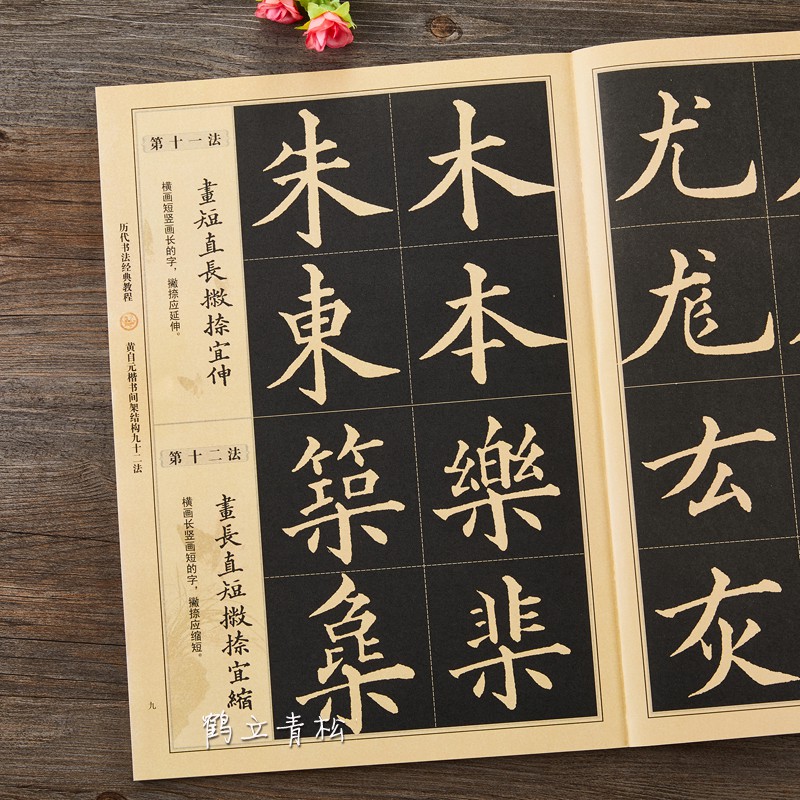 历代书法经典教程
黄自元楷书间架结构九十二法
九
第十一法
畫短直長撇捺宜伸
横画短竖画长的字，撇捺应延伸。
木本
朱東
第十二法
畫長直短撇捺宜縮
横画长竖画短的字，撇捺应缩短。
樂棐
築
尤尨
厷灰
鹤立青松